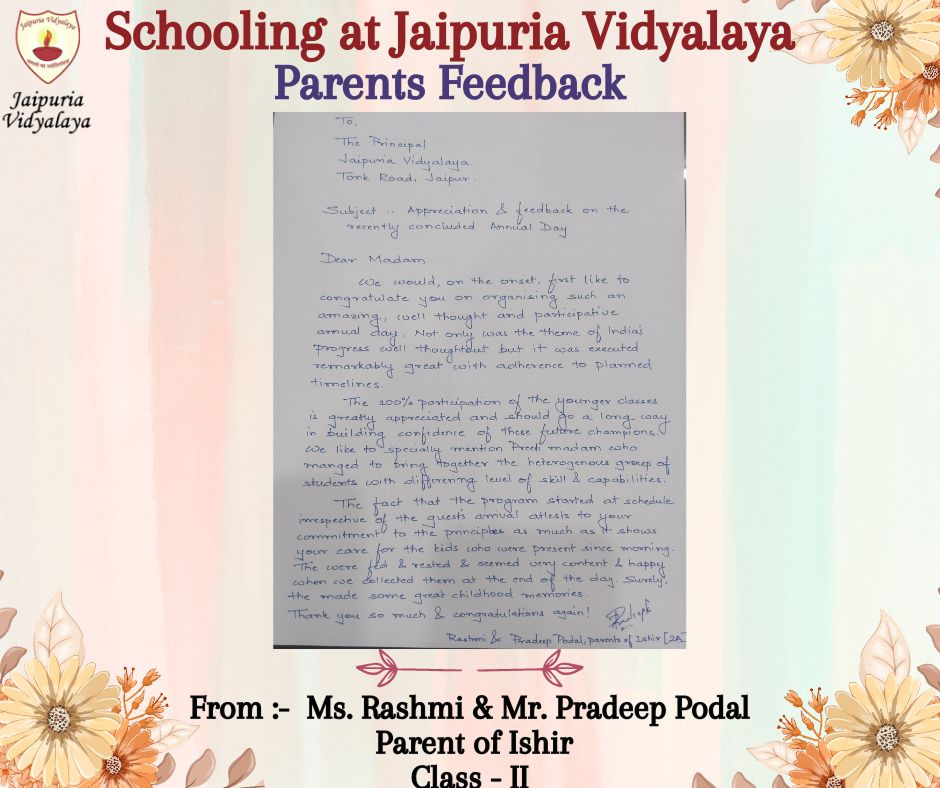 Jaipuria Vidyalaya
Schooling at Jaipuria Vidyalaya
Parents Feedback
Jaipuria
Vidyalaya
To,
The Principal
Jaipuria Vidyalaya
Tonk Road, Jaipur.
Subject :- Appreciation & feedback on the
recently concluded Annual Day
Dear Madam
We would, on the onset, first like to
congratulate you on organising such an
amazing, well thought and participative
annual day. Not only was the theme of India's
progress well thoughtout but it was executed
remarkably great with adherence to planned
timelines.
The 100% participation of the younger classes
is greatly appreciated and should go a long way
in building confidence of these future champions.
We like to specially mention Preeti madam who
manged to bring together the heterogenous group of
students with differering level of skill & capabilities.
The fact that the program started at schedule
irrespective of the guests arrival attests to your
commitment to the principles as much as it shows
your care for the kids who were present since morning.
The were fed & rested & seemed very content & happy
when we collected them at the end of the day. Surely,
the made some great childhood memories.
Thank you so much & congratulations again!
Pradeep
Rashmi & Pradeep Podal, parents of Ishir [2A]
From :- Ms. Rashmi & Mr. Pradeep Podal
Parent of Ishir
Class - II